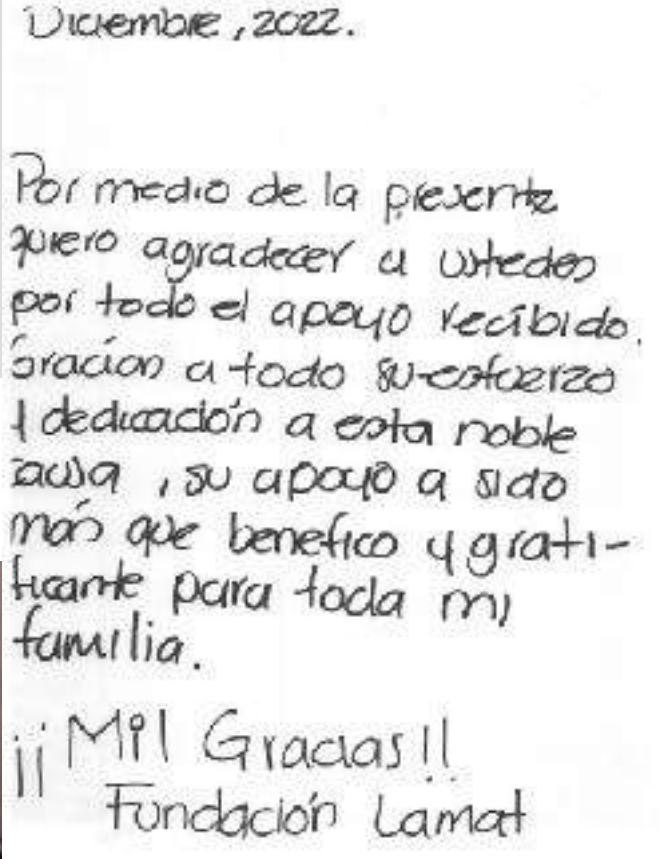 Diciembre, 2022.
Por medio de la presente
quiero agradecer a ustedes
por todo el apoyo recibido.
Gracias a todo su esfuerzo
y dedicación a esta noble
causa, su apoyo a sido
más que benefico y grati-
ficante para toda mi
familia.
¡¡Mil Gracias!!
Fundación Lamat